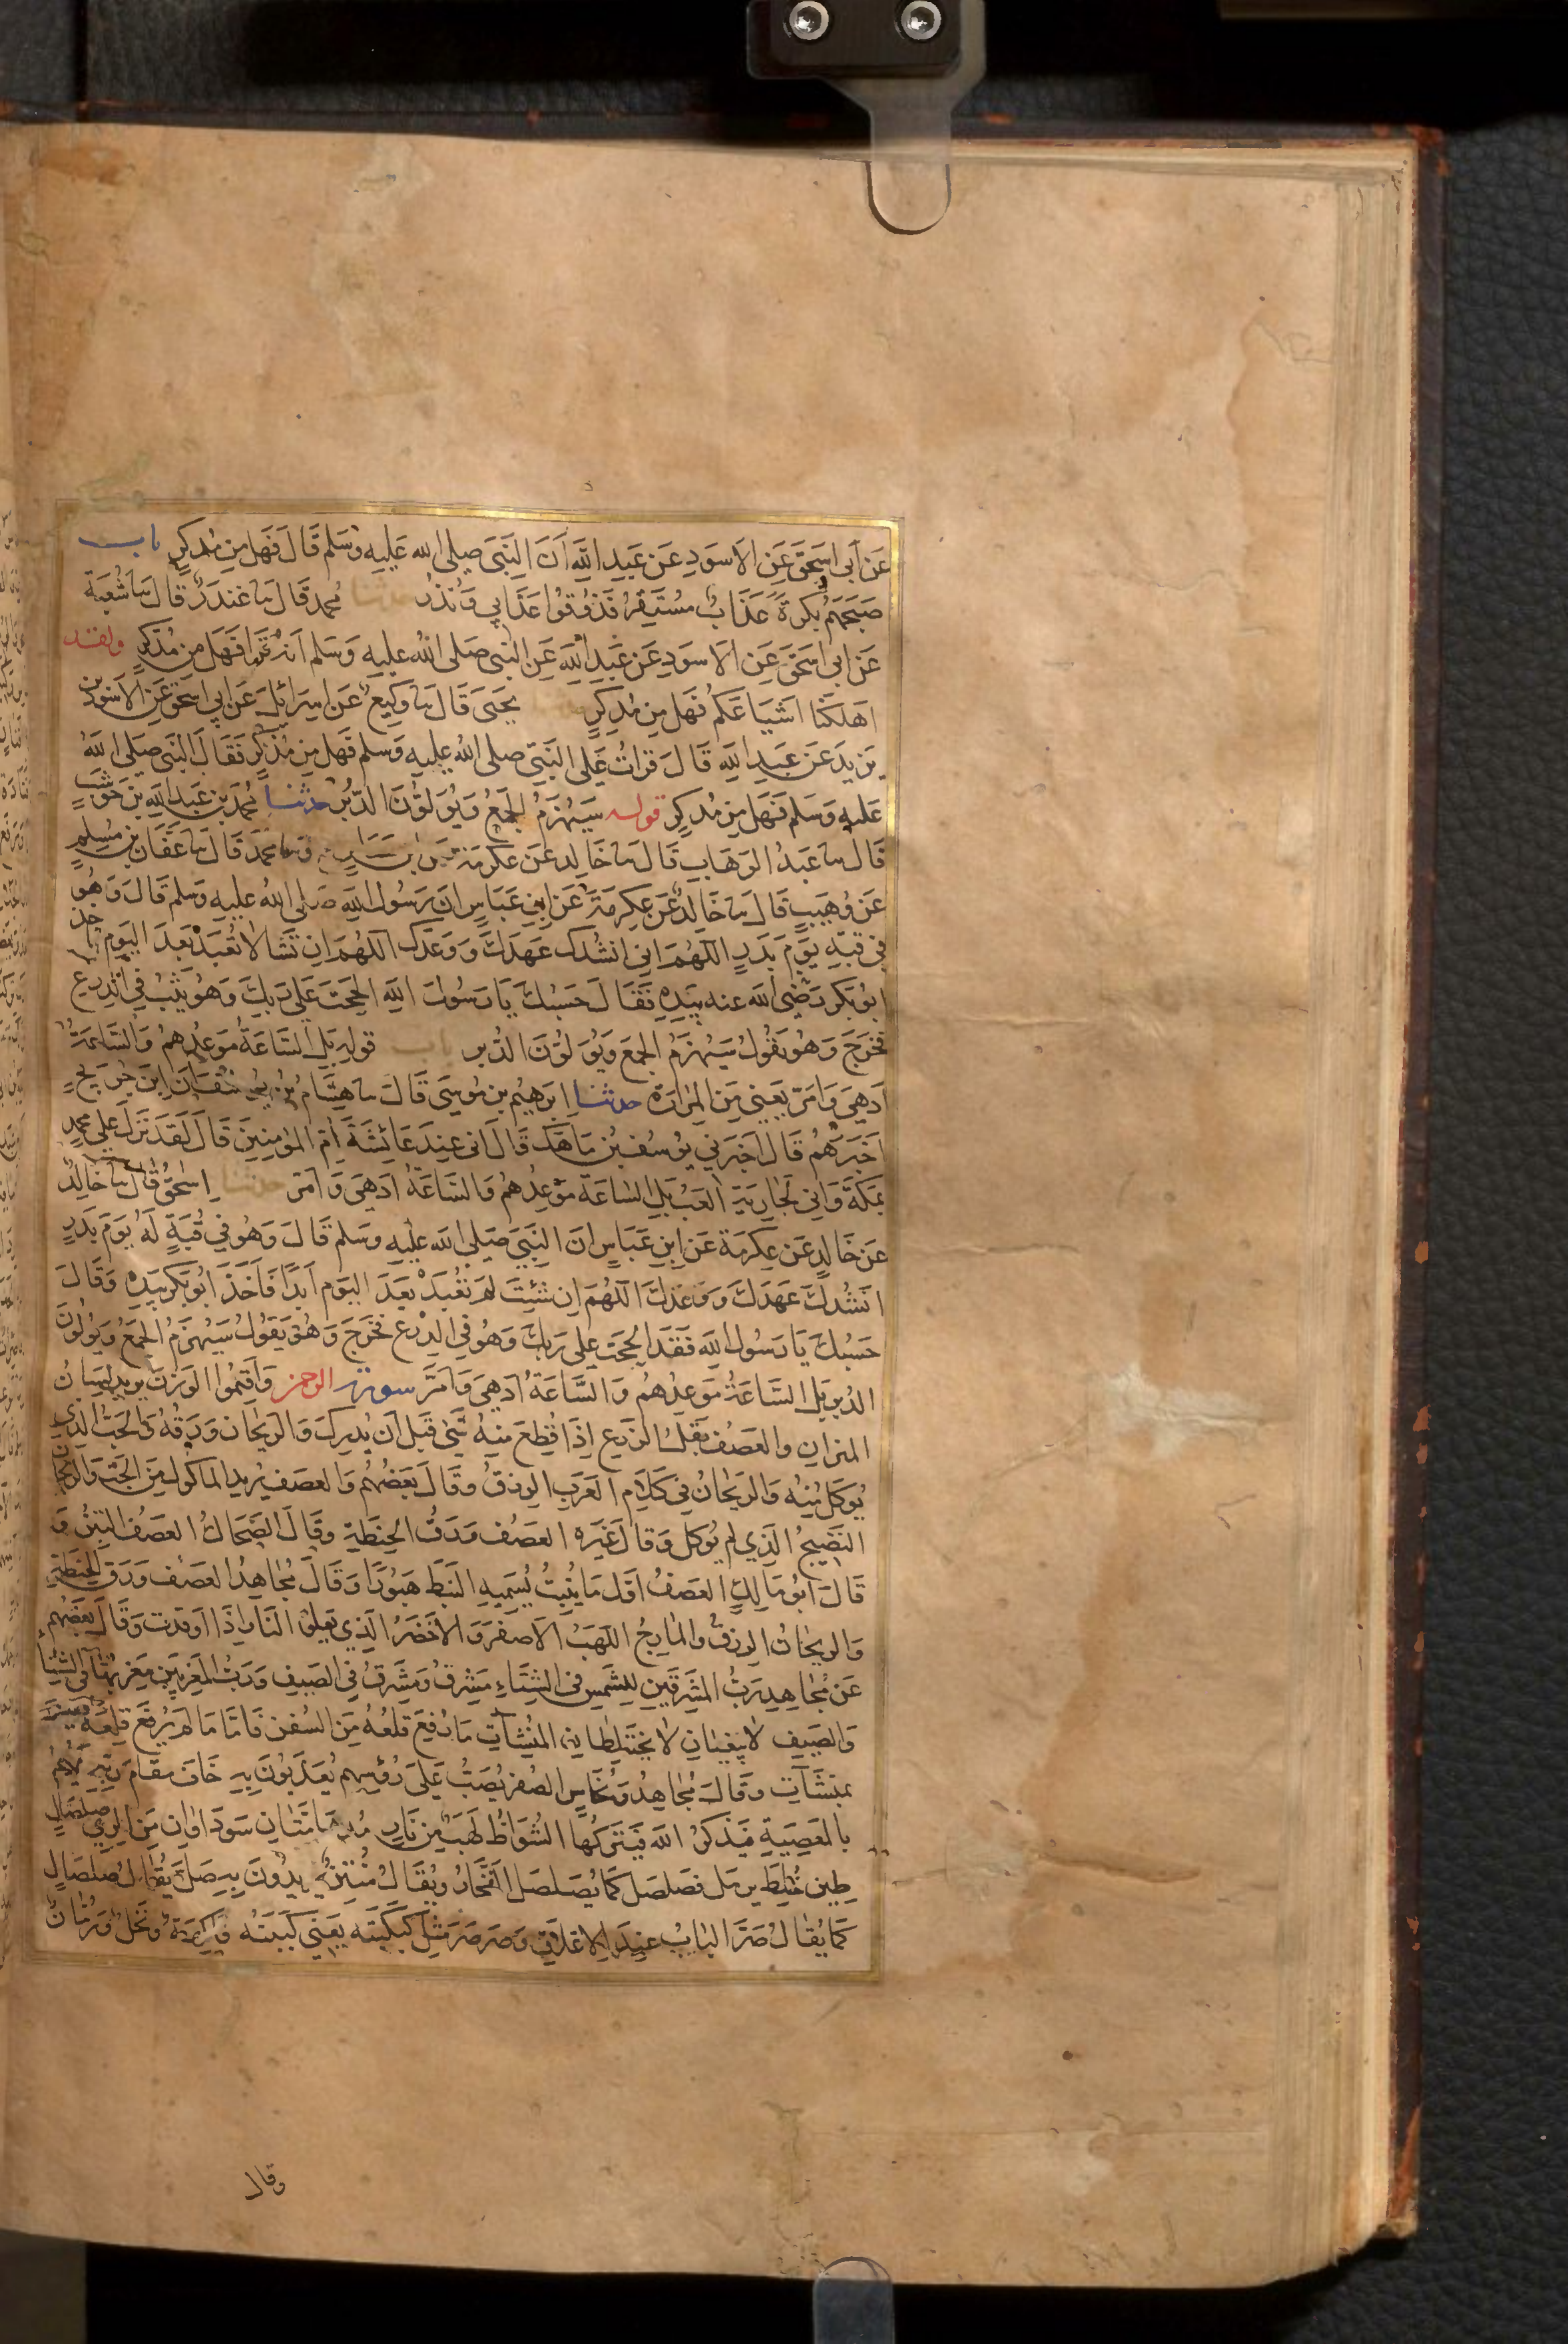 عَن اَبى اسحقَ عَنِ الاسَودِ عَن عَبدِ اللّٰهِ اَنَ النَبىَ صلى الله عَليهِ وسَلم قَالَ فَهَل مِن مُدكِرٍ باب
صَبحَهَم بُكرَةً عَذَابٌ مُستَقِرٌ فَذُوقُوا عَذَابِي وَنُذرُ حدثنا محمد قَال نا غندَرٌ قال نا شُعبَة
عَن ابى اسحَقَ عَنِ الاَسوَدِ عَن عَبدِ اللّهِ عَنِ النَبى صَلى اللهُ عليهِ وَسَلم اَنهُ قَرا فَهَل مِن مُدَّكِرٍ ولقد
اَهلَكنَا اَشيَاعَكُم فَهَل مِن مُدكِرٍ حدثنا يَحيَى قَالَ نا وَكِيعٌ عَن اِسرَائلَ عَن اَبِي اسحقَ عَنِ الاَسوَدِ بن
يَزيدَ عَن عَبدِ اللهِ قَالَ قَراتُ عَلَى النَبيّ صلى اللهُ عليهِ وَسلم فَهل مِن مُذكِرٍ فَقَالَ النَبى صَلى اللهُ
عَليهِ وَسَلم فَهَل مِن مُدكِرٍ قوله سَيُهزَمُ الجَمعُ وَيُوَلّوُنَ الدُّبُرَ حدثنا مُحمدُ بن عَبدِ اللّهِ بن حَوشَبٍ
قَالَ نا عَبدُ الوَهَابِ قَالَ نا خَالِد عَن عِكرمَة عَن ابن عَبَاسٍ ونا محمد قَالَ نا عَفَانُ بن مُسلِمٍ
عَن وُهَيبٍ قَالَ نا خَالِدٌ عَن عِكرِمَةَ عَنِ ابنِ عَبَاسٍ ان رَسُولَ اللّهِ صَلى اللهُ عليهِ وسَلم قَالَ وَهُوَ
فِى قبةٍ يَومَ بَدرٍ اللَهُمَ انِى اَنشُدُكَ عَهدَكَ وَوَعدَكَ اللهُمَ اِن تَشَا لاَ تُعبَدْ بَعدَ اليَومِ فاخذ
اَبُو بَكرٍ رَضِىَ اللّهُ عنه بيَدهِ فَقَالَ حَسبُكَ يَا رَسُولَ اللهِ الحَحتَ عَلى رَبكَ وَهُوَ يَثِبُ فِى الدِرعِ
فَخَرَجَ وَهُوَ يَقُولُ سَيُهزَمُ الجمعُ وَيُوَلوُنَ الدُّبُر باب قولِهِ بَلِ السَّاعَةُ مَوعِدُهُم وَالسَّاعَةُ
اَدهَى وَاَمَرّ يَعنِى مِنَ المَرارَة حدثنا اِبرَهِيمُ بن مُوسَى قَالَ نا هِشَامُ بنُ يوسُفَ اَن ابنَ جُرَيجٍ
اَخبَرَهُم قَالَ اَخبَرَنِي يُوسُفُ بُن مَاهَكَ قَالَ انى عِندَ عَائِشَةَ اُم المُومِنِينَ قَالَ لَقَد نَزَلَ عَلى محمدٍ
بمَكَةَ وَانِى لَجَارِيَة اَلعَبُ بَلِ السَاعَة مَوعِدُهم وَالسَاعَةُ اَدهَى وَاَمر حدثنا اِسحَقُ قَالَ نا خَالِدٌ
عَن خَالدٍ عَن عِكرِمَة عَنِ ابنِ عَبَاسٍ انَ النَبيَ صَلَى الله عَليهِ وسَلم قَالَ وَهُوَ فِى قُبَةٍ لَهُ يَومَ بَدرٍ
انشُدكَ عَهدَكَ وَوَعدَكَ اللهُمَ اِن شئِتَ لَم تُعبَدْ بَعدَ اليَومِ اَبَدًا فَاَخَذَ اَبُو بَكرٍ بيَدهِ وَقَالَ
حَسبُكَ يَا رَسُولَ اللهِ فَقَد اَلححتَ عَلى رَبكَ وَهُوَ فِى الدِرع فَخَرَجَ وَهُوَ يَقُولُ سَيُهزَمُ الجَمعُ وَيُولوُنَ
الدُبر بَلِ السَّاعَةُ مَوعِدُهُم وَالسَّاعَةُ اَدهَى وَاَمَرَّ سورة الرحمن وَاَقيمُوا الوَزنَ يريدُ لِسَانَ
المِيزانِ والعَصفُ بَقلُ الزَرعِ اِذَا قُطِعَ مِنهُ شَىٌ قَبلَ اَن يُدرِكَ وَالريحَانُ وَرَقُهُ وَالحَبُّ الذِي
يُوكَلُ مِنهُ وَالرَيحَانُ فِى كَلَامِ العَرَبِ الرِزقُ وَقَالَ بَعضُهُم وَالعَصفُ يُريدُ الماكُولَ مِنَ الحَبِّ وَالرَيحَانُ
النَضِيجُ الَذِي لَم يُوكَل وَقالَ غَيرُه العَصفُ وَرَقُ الحِنطَةِ وقَالَ الضَحَاكُ العَصفُ التِبنُ وَ
قَالَ اَبُو مَالِكٍ العَصفُ اَوّلُ مَا يَنبُتُ يُسَمِيهِ النَبَط هَبُورًا وَقَالَ مُجاهِدٌ العَصف وَرَق الحِنطَةِ
وَالرَيحَانُ الرِزقُ وَالمَارِجُ اللهَبُ الاَصفَرُ وَالاَخضَرُ الَذِي يَعلُو النَارَ اِذَا اُوقدت وَقَالَ بَعضُهُم
عَن مُجَاهِدٍ رَبُّ المَشرِقَينِ لِلشَمسِ فِى الشِتَاءِ مَشرِقٌ وَمَشرِقٌ فِى الصَيفِ وَرَبُّ المَغرِبَينِ مَغرِبُهَا فِى الشِتَاءِ
وَالصَيفِ لاَ يَبغِيَانِ لاَ يَختَلِطانِ المُنشَآتُ مَا رُفِعَ قِلعُهُ مِنَ السُفنِ فَامَّا مَا لَم يُرفَع قِلعُهُ فليس
بمنشَآتٍ وَقَالَ مُجَاهِدٌ وَنُحَاسٌ الصُفرُ يُصَبُّ عَلَى رُؤسِهِم يُعَذَبُونَ بِهِ خَافَ مَقَامَ رَبِّهِ يَهُمُّ
بالمَعصِيَةِ فَيَذكُرُ اللهَ فَيَتركُهَا الشُوَاظُ لَهَبٌ مِن نَارٍ مُدهَامَّتَانِ سَودَاوَانِ مِنَ الرِيّ صلصَالٍ
طِين خُلِطَ برَمل فَصَلصَلَ كَمَا يُصَلصِلُ الفَخَارُ ويُقَالُ مُنتِنٌ يُريدُونَ بِهِ صَلّ يُقَالُ صلصَالٍ
كَمَا يُقالُ صَرَّ البَابُ عِندَ الاِغلاَقِ وَصَرصَرَ مَثلُ كَبكَبتُه يَعنِي كَببتُهُ فَاكِهَةٌ وَنَخلٌ وَرُمَّانٌ
وقال